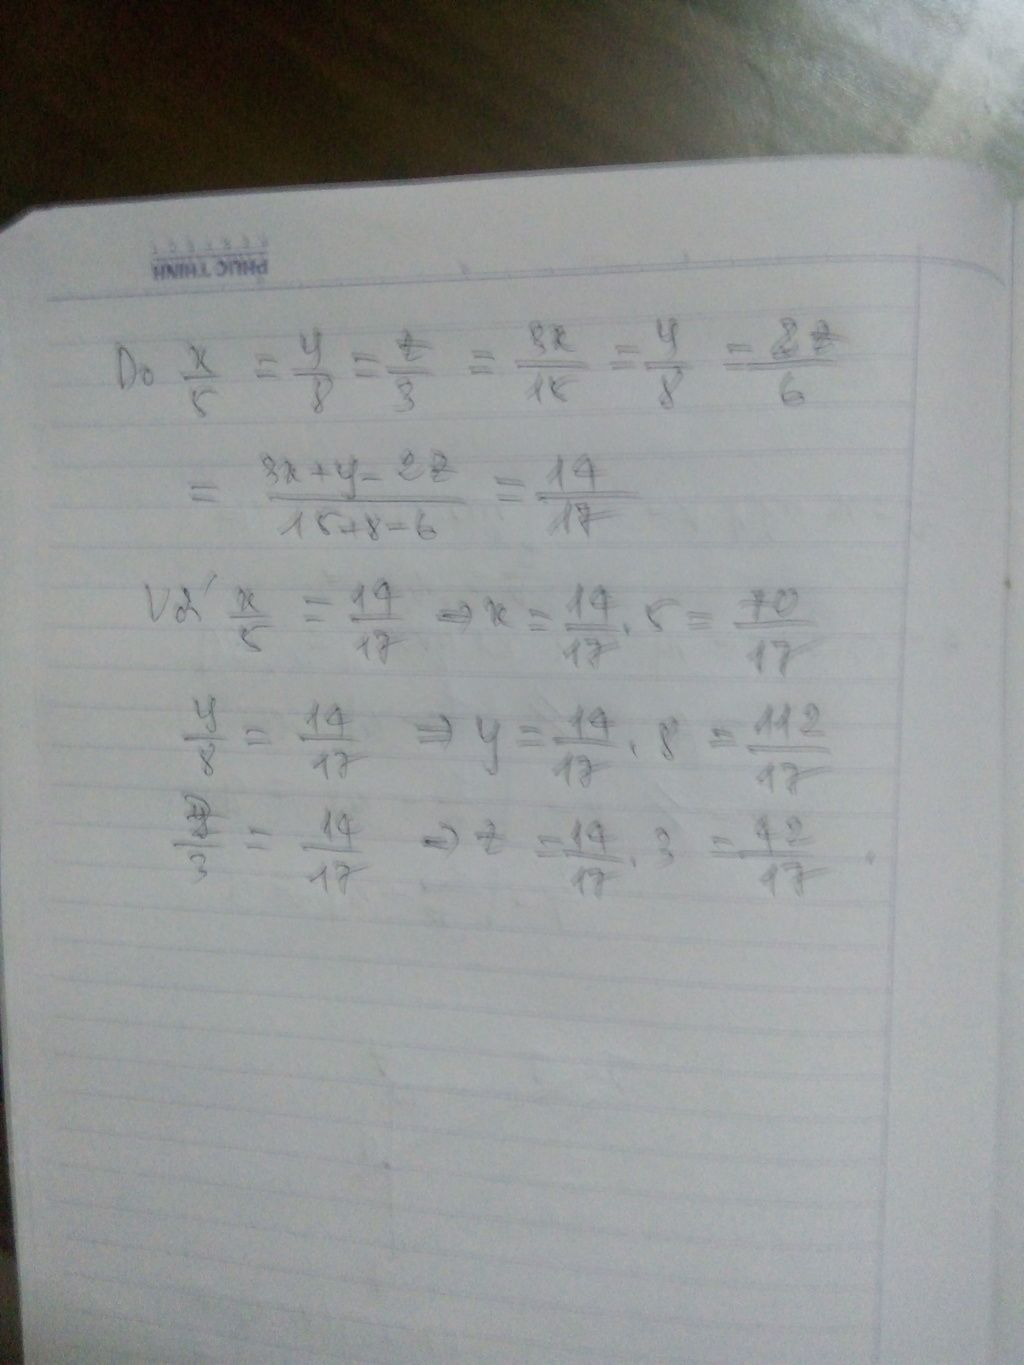 PHUC THINH
Do x/5 = y/8 = z/3 = 3x/15 = y/8 = 2z/6
= (3x+y-2z)/(15+8-6) = 14/17
Vì x/5 = 14/17 => x = 14/17 . 5 = 70/17
y/8 = 14/17 => y = 14/17 . 8 = 112/17
z/3 = 14/17 => z = 14/17 . 3 = 42/17 .